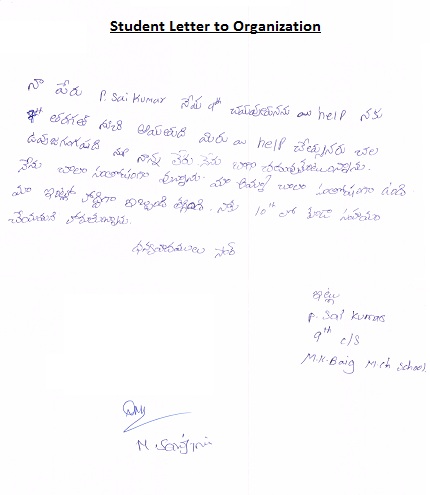 Student Letter to Organization
నా పేరు P. Sai Kumar నేను 9th చదువుతున్నను ఈ help నకు
7th తరగతి నుంచి అయితుంది మిరు ఈ help చేస్తున్నరు చల
ఉపయోగంగఉంది మా నాన్న లేరు నేను బాగా చదువుతున్నాను.
నేను చాలా సంతోషంగా వున్నాను. మా అమ్మ చాలా సంతోషంగా ఉంది.
మా ఇంట్లో కొద్దిగా ఇబ్బంది ఉంది. నాకు 10th లో కూడా సహయం
చేయలని కోరుతున్నాను.
ధన్యవాదములు సార్
ఇట్లు
P. Sai Kumar
9th c/s
M.K. Baig M ch School.